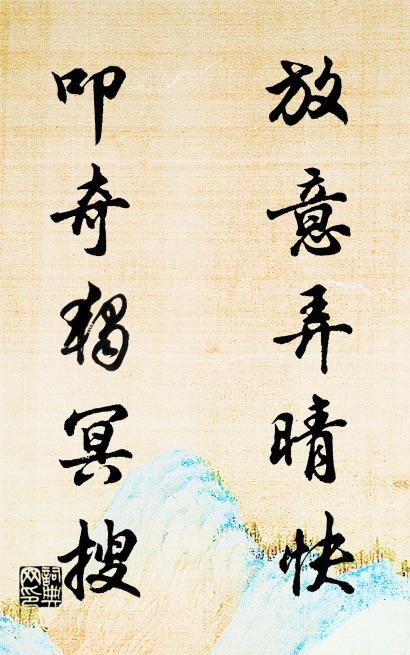 放意弄晴快
叩奇獨冥搜
詞典网印